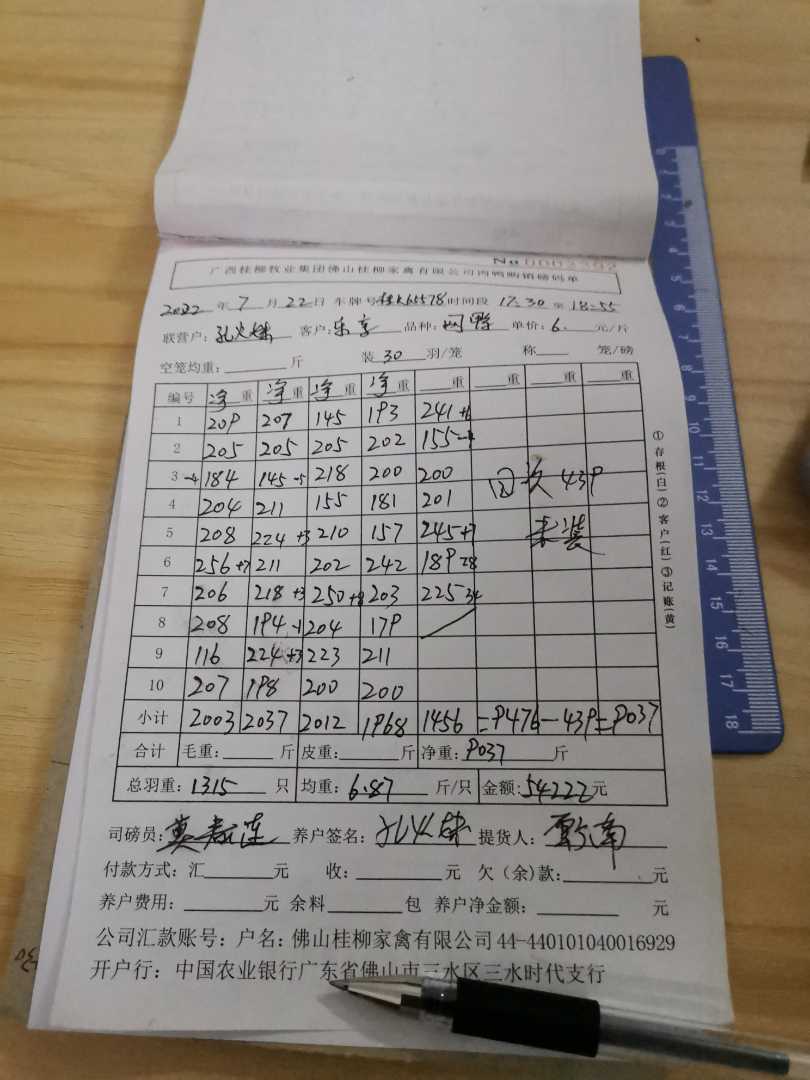 No 0002302
广西桂柳牧业集团佛山桂柳家禽有限公司肉鸭购销磅码单
2022 年 7 月 22 日 车牌号 桂K65578 时间段 17:30 至 18:55
联营户: 孔火娣 客户: 乐享 品种: 网鸭 单价: 6. 元/斤
空笼均重: 斤 装 30 羽/笼 称 笼/磅
编号 净重 净重 净重 净重 重 重 重 重
1 209 207 145 193 241 +6
2 205 205 205 202 155 -4
3 -4 184 145 -5 218 200 200 回皮 439
4 204 211 155 181 201
5 208 224 +3 210 157 245 +7 未装
6 256 +7 211 202 242 189 28
7 206 218 +3 250 +8 203 225 34
8 208 194 -1 204 179
9 116 224 +3 223 211
10 207 198 200 200
小计 2003 2037 2012 1968 1456 =9476-439=9037
合计 毛重: 斤 皮重: 斤 净重: 9037 斤
总羽重: 1315 只 均重: 6.87 斤/只 金额: 54222 元
司磅员: 养户签名: 孔火娣 提货人: 黔南
付款方式: 汇 元 收: 元 欠(余)款: 元
养户费用: 元 余料 包 养户净金额: 元
公司汇款账号: 户名: 佛山桂柳家禽有限公司 44-440101040016929
开户行: 中国农业银行广东省佛山市三水区三水时代支行
①存根(白)②客户(红)③记账(黄)
9 10 11 12 13 14 15 16 17 18